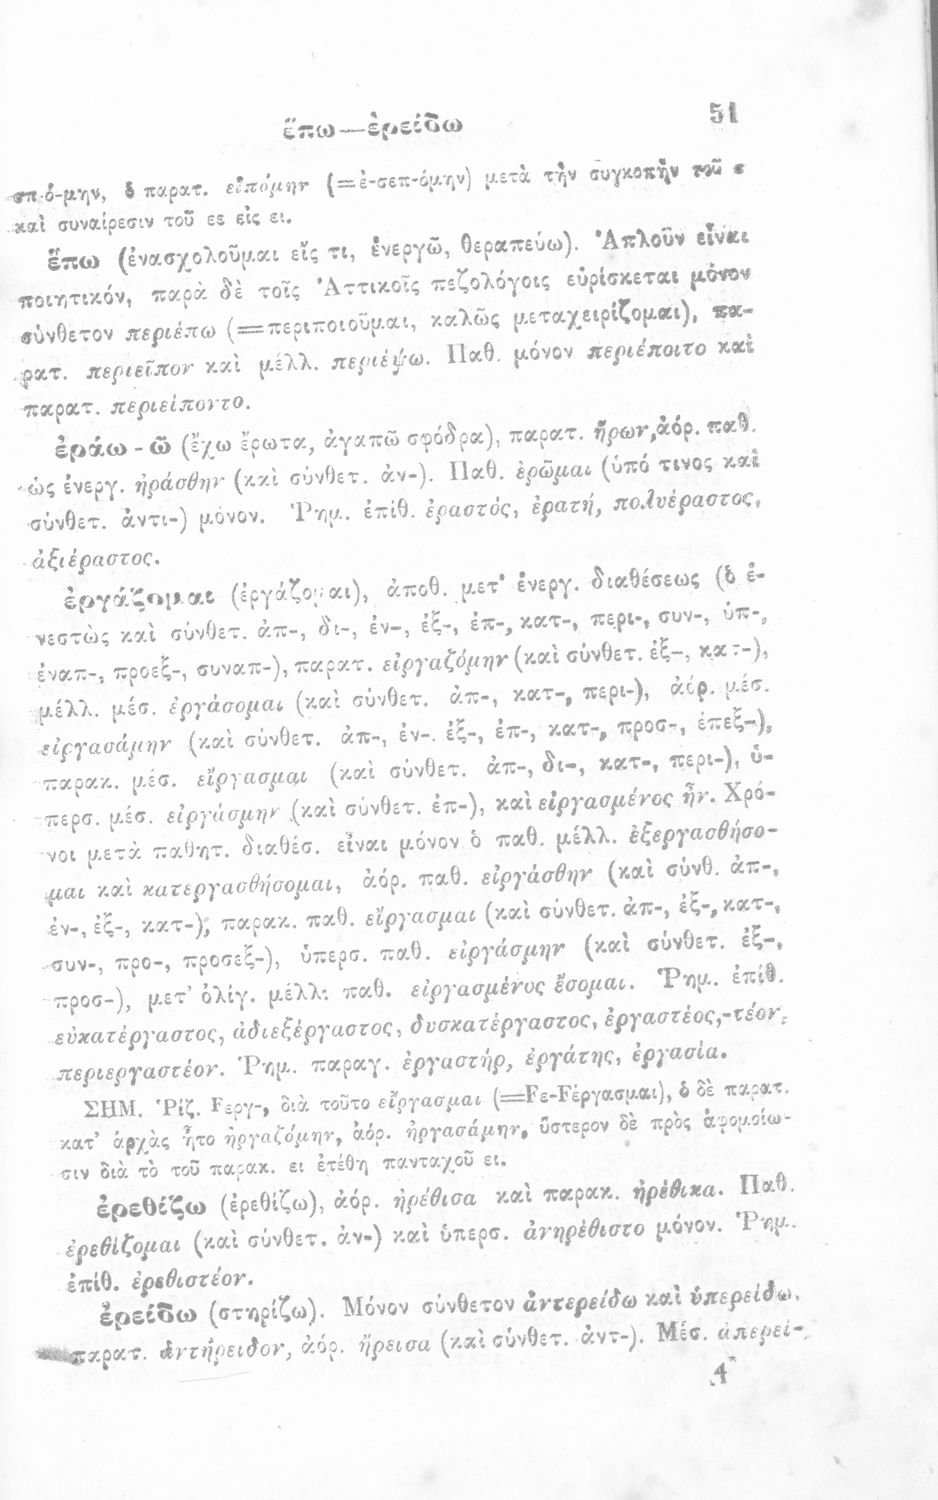 ἕπω—ἐρείδω 51
σπ-ό-μην, ὁ παρατ. εἱπόμην (=ἐ-σεπ-όμην) μετὰ τὴν συγκοπὴν τοῦ σ
καὶ συναίρεσιν τοῦ εε εἰς ει.
ἕπω (ἐνασχολοῦμαι εἴς τι, ἐνεργῶ, θεραπεύω). Ἁπλοῦν εἶναι
ποιητικόν, παρὰ δὲ τοῖς Ἀττικοῖς πεζολόγοις εὑρίσκεται μόνον
σύνθετον περιέπω (=περιποιοῦμαι, καλῶς μεταχειρίζομαι), πα-
ρατ. περιεῖπον καὶ μέλλ. περιέψω. Παθ. μόνον περιέποιτο καὶ
παρατ. περιείποντο.
ἐράω-ῶ (ἔχω ἔρωτα, ἀγαπῶ σφόδρα), παρατ. ἤρων, ἀόρ. παθ.
ὡς ἐνεργ. ἠράσθην (καὶ σύνθετ. ἀν-). Παθ. ἐρῶμαι (ὑπό τινος καὶ
σύνθετ. ἀντι-) μόνον. Ῥημ. ἐπίθ. ἐραστός, ἐρατή, πολυέραστος,
ἀξιέραστος.
ἐργάζομαι (ἐργάζομαι), ἀποθ. μετ' ἐνεργ. διαθέσεως (ὁ ἐ-
νεστὼς καὶ σύνθετ. ἀπ-, δι-, ἐν-, ἐξ-, ἐπ-, κατ-, περι-, συν-, ὑπ-,
ἐναπ-, προεξ-, συναπ-), παρατ. εἰργαζόμην (καὶ σύνθετ. ἐξ-, κατ-),
μέλλ. μέσ. ἐργάσομαι (καὶ σύνθετ. ἀπ-, κατ-, περι-), ἀόρ. μέσ.
εἰργασάμην (καὶ σύνθετ. ἀπ-, ἐν-. ἐξ-, ἐπ-, κατ-, προσ-, ἐπεξ-),
παρακ. μέσ. εἴργασμαι (καὶ σύνθετ. ἀπ-, δι-, κατ-, περι-), ὑ-
περσ. μέσ. εἰργάσμην (καὶ σύνθετ. ἐπ-), καὶ εἰργασμένος ἦν. Χρό-
νοι μετὰ παθητ. διαθέσ. εἶναι μόνον ὁ παθ. μέλλ. ἐξεργασθήσο-
μαι καὶ κατεργασθήσομαι, ἀόρ. παθ. εἰργάσθην (καὶ σύνθ. ἀπ-,
ἐν-, ἐξ-, κατ-), παρακ. παθ. εἴργασμαι (καὶ σύνθετ. ἀπ-, ἐξ-, κατ-,
συν-, προ-, προσεξ-), ὑπερσ. παθ. εἰργάσμην (καὶ σύνθετ. ἐξ-,
προσ-), μετ' ὀλίγ. μέλλ. παθ. εἰργασμένος ἔσομαι. Ῥημ. ἐπίθ.
εὐκατέργαστος, ἀδιεξέργαστος, δυσκατέργαστος, ἐργαστέος,-τέον,
περιεργαστέον. Ῥημ. παραγ. ἐργαστήρ, ἐργάτης, ἐργασία.
ΣΗΜ. Ῥίζ. Fεργ-, διὰ τοῦτο εἴργασμαι (=Fε-Fέργασμαι), ὁ δὲ παρατ.
κατ' ἀρχὰς ἦτο ἠργαζόμην, ἀόρ. ἠργασάμην, ὕστερον δὲ πρὸς ἀφομοίω-
σιν διὰ τὸ τοῦ παρακ. ει ἐτέθη πανταχοῦ ει.
ἐρεθίζω (ἐρεθίζω), ἀόρ. ἠρέθισα καὶ παρακ. ἠρέθικα. Παθ.
ἐρεθίζομαι (καὶ σύνθετ. ἀν-) καὶ ὑπερσ. ἀνηρέθιστο μόνον. Ῥημ.
ἐπίθ. ἐρεθιστέον.
ἐρείδω (στηρίζω). Μόνον σύνθετον ἀντερείδω καὶ ὑπερείδω,
παρατ. ἀντήρειδον, ἀόρ. ἤρεισα (καὶ σύνθετ. ἀντ-). Μέσ. ἀπερεί-
4*